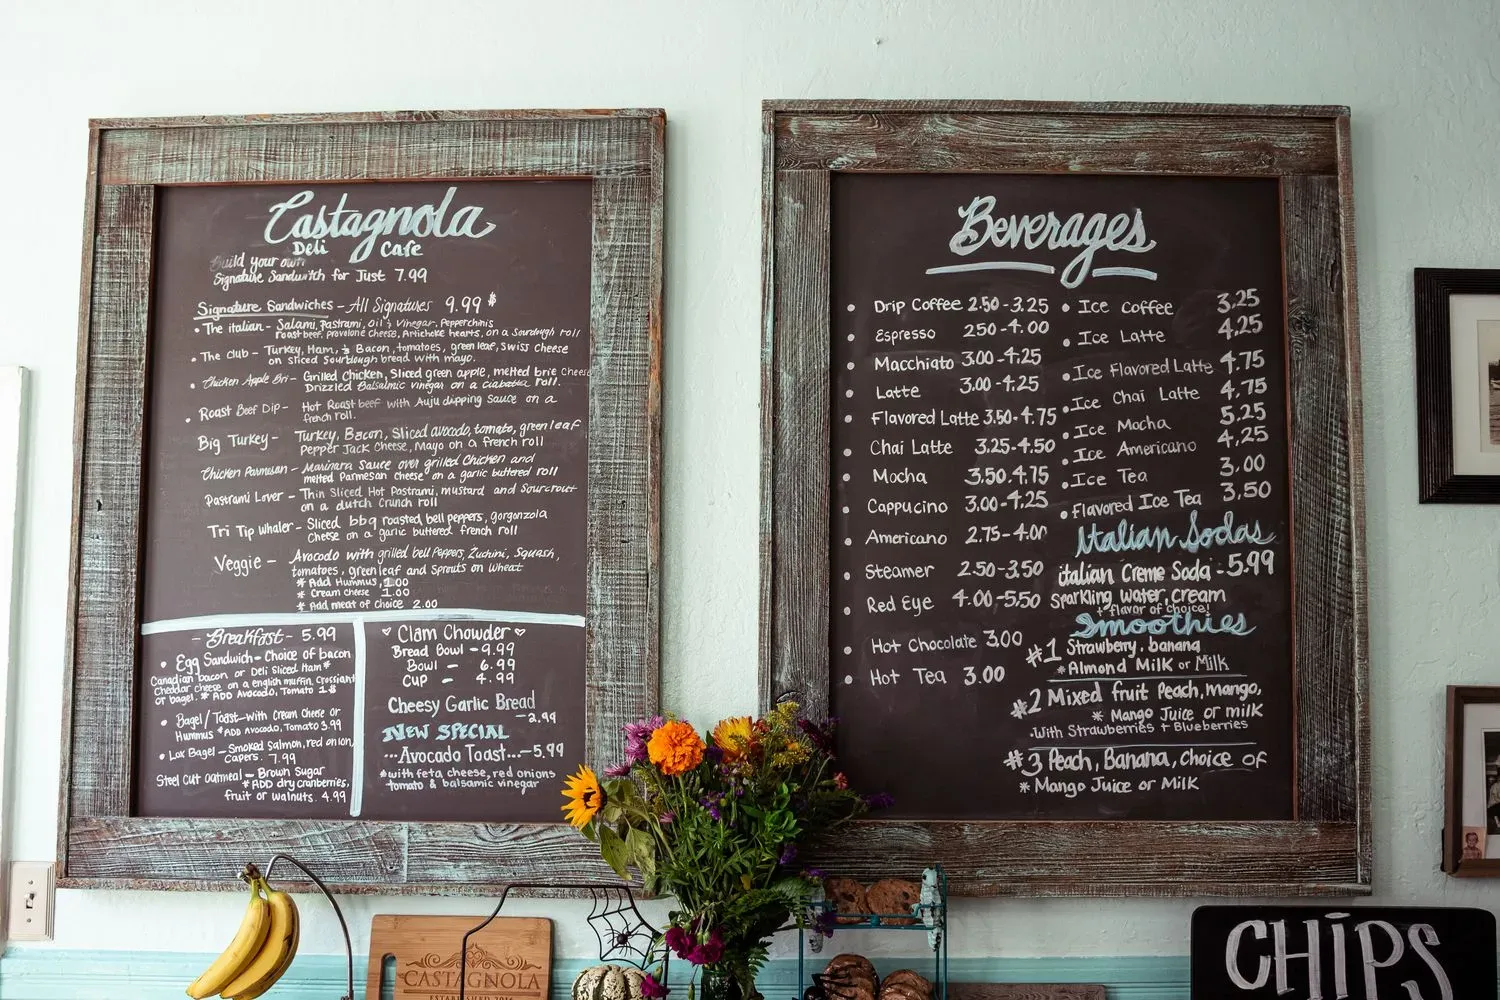 Castagnola
Deli Cafe
Build your own
Signature Sandwitch for Just 7.99
Signature Sandwiches - All Signatures 9.99 $
• The italian - Salami, Pastrami, oil & Vinegar, Pepperchinis
roast beef, provalone Cheese, Artichoke hearts, on a Sourdough roll
• The club - Turkey, Ham, & Bacon, tomatoes, green leaf, Swiss Cheese
on sliced Sourdough bread with mayo.
• Chicken Apple Bri - Grilled Chicken, Sliced green apple, melted brie Cheese
Drizzled Balsalmic vinegar on a ciabatta roll.
• Roast Beef Dip - Hot Roast beef with Auju dipping sauce on a
french roll.
Big Turkey - Turkey, Bacon, Sliced avocado, tomato, green leaf
Pepper Jack Cheese, Mayo on a french roll
Chicken Parmesan - Marinara sauce over grilled Chicken and
melted Parmesan Cheese on a garlic buttered roll
Pastrami Lover - Thin Sliced Hot Pastrami, mustard and Sourcrout
on a dutch Crunch roll
Tri Tip Whaler - Sliced bbq roasted bell peppers, gorgonzola
Cheese on a garlic buttered french roll
Veggie - Avocado with grilled bell Peppers, Zuchini, Squash,
tomatoes, greenleaf and Sprouts on Wheat
* Add Hummus, 1.00
* Cream cheese 1.00
* Add meat of Choice 2.00
- Breakfast - 5.99
• Egg Sandwich - Choice of bacon
Canadian bacon or Deli Sliced Ham *
Cheddar cheese on a english muffin, Crossiant
or bagel. * ADD Avocado, Tomato 1 $
• Bagel/Toast - With Cream Cheese or
Hummus * ADD Avocado, Tomato 3.99
• Lox Bagel - Smoked Salmon, red onion,
Capers. 7.99
Steel Cut oatmeal - Brown Sugar
* ADD dry cranberries,
fruit or walnuts. 4.99
Clam Chowder
Bread Bowl - 9.99
Bowl - 6.99
Cup - 4.99
Cheesy Garlic Bread
- 2.99
New Special
...Avocado Toast...-5.99
* with feta cheese, red onions
tomato & balsamic vinegar
Beverages
• Drip Coffee 2.50 - 3.25
• Espresso 250 - 4.00
• Macchiato 3.00 - 4.25
• Latte 3.00 - 4.25
• Flavored Latte 3.50 - 4.75
• Chai Latte 3.25 - 4.50
• Mocha 3.50 - 4.75
• Cappucino 3.00 - 4.25
• Americano 2.75 - 4.00
• Steamer 2.50 - 3.50
• Red Eye 4.00 - 5.50
• Hot Chocolate 3.00
• Hot Tea 3.00
• Ice Coffee 3.25
• Ice Latte 4.25
• Ice Flavored Latte 4.75
• Ice Chai Latte 4.75
• Ice Mocha 5.25
• Ice Americano 4.25
• Ice Tea 3.00
• Flavored Ice Tea 3.50
Italian Sodas
italian Creme Soda - 5.99
Sparkling water, cream
+ flavor of choice!
Smoothies
#1 Strawberry, banana
* Almond Milk or Milk
#2 Mixed fruit Peach, mango,
* Mango Juice or milk
-With Strawberries + Blueberries
#3 Peach, Banana, choice of
* Mango Juice or Milk
CASTAGNOLA
ESTABLISHED 2016
CHIPS